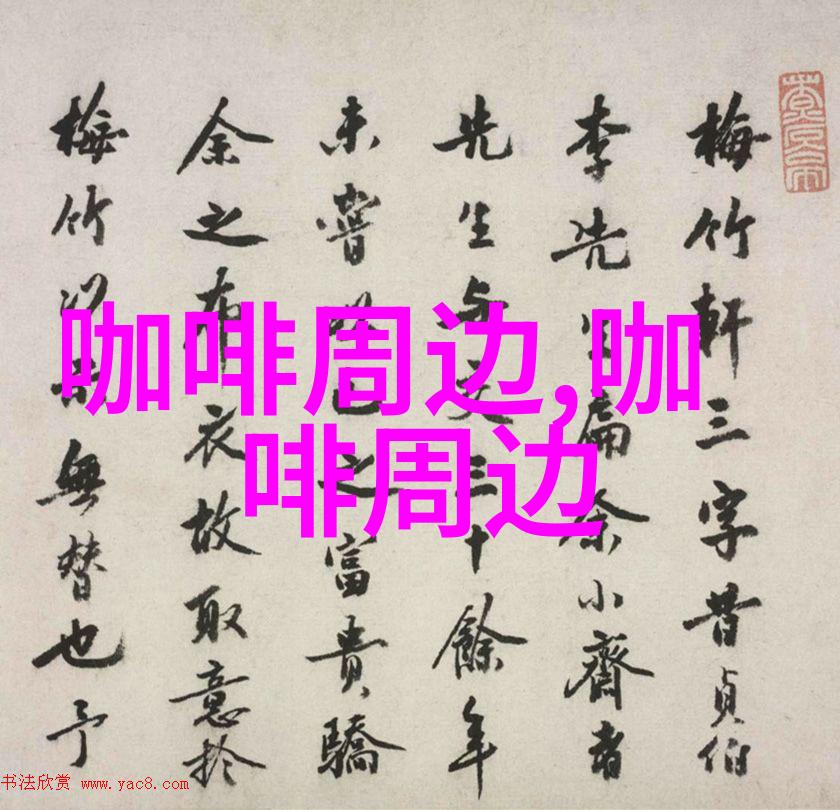 梅竹軒三字昔貞伯
李先生扁余小齋者
先生与交三十餘年
未嘗以己之富貴驕
余之布衣故取意於
梅竹無替也予
咖啡周边,咖
啡周边
书法欣赏 www.yac8.com